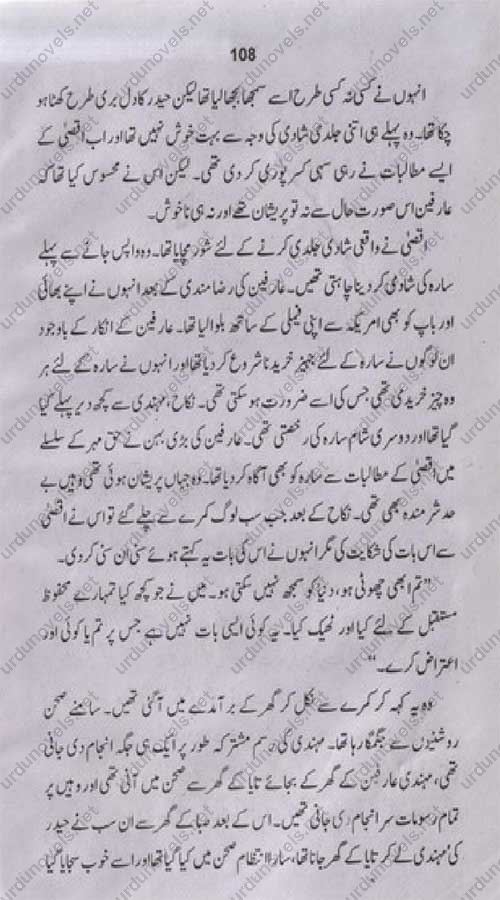 108
انہوں نے کسی نہ کسی طرح اسے سمجھا بجھا لیا تھا لیکن حیدر کا دل بری طرح کھٹا ہو
چکا تھا۔ وہ پہلے ہی اتنی جلدی شادی کی وجہ سے بہت خوش نہیں تھا اور اب اقصیٰ کے
ایسے مطالبات نے رہی سہی کسر پوری کر دی تھی۔ لیکن اس نے محسوس کیا تھا کہ
عارفین اس صورت حال سے نہ تو پریشان تھے اور نہ ہی ناخوش۔
اقصیٰ نے واقعی شادی جلدی کرنے کے لئے شور مچایا تھا۔ وہ واپس جانے سے پہلے
سارہ کی شادی کر دینا چاہتی تھیں۔ عارفین کی رضا مندی کے بعد انہوں نے اپنے بھائی
اور باپ کو بھی امریکہ سے اپنی فیملی کے ساتھ بلوا لیا تھا۔ عارفین کے انکار کے باوجود
ان لوگوں نے سارہ کے لئے جہیز خریدنا شروع کر دیا تھا اور انہوں نے سارہ کے لئے ہر
وہ چیز خریدی تھی جس کی اسے ضرورت ہو سکتی تھی۔ نکاح، مہندی سے کچھ دیر پہلے کیا
گیا تھا اور دوسری شام سارہ کی رخصتی تھی۔ عارفین کی بڑی بہن نے حق مہر کے سلسلے
میں اقصیٰ کے مطالبات سے سارہ کو بھی آگاہ کر دیا تھا۔ وہ جہاں پریشان ہوئی تھی وہیں بے
حد شرمندہ بھی تھی۔ نکاح کے بعد جب سب لوگ کمرے سے چلے گئے تو اس نے اقصیٰ
سے اس بات کی شکایت کی مگر انہوں نے اس کی بات یہ کہتے ہوئے سنی ان سنی کر دی۔
"تم ابھی چھوٹی ہو، دنیا کو سمجھ نہیں سکتی ہو۔ میں نے جو کچھ کیا تمہارے محفوظ
مستقبل کے لئے کیا اور ٹھیک کیا۔ یہ کوئی ایسی بات نہیں ہے جس پر تم یا کوئی اور
اعتراض کرے۔"
وہ یہ کہہ کر کمرے سے نکل کر گھر کے برآمدے میں آ گئی تھیں۔ سامنے صحن
روشنیوں سے جگمگا رہا تھا۔ مہندی کی رسم مشترکہ طور پر ایک ہی جگہ انجام دی جانی
تھی، مہندی عارفین کے گھر کے بجائے تایا کے گھر سے صحن میں آنی تھی اور وہیں پر
تمام رسومات سر انجام دی جانی تھیں۔ اس کے بعد صبا کے گھر سے ان سب نے حیدر
کی مہندی لے کر تایا کے گھر جانا تھا، سارا انتظام صحن میں کیا گیا تھا اور اسے خوب سجایا گیا
urdunovels.net